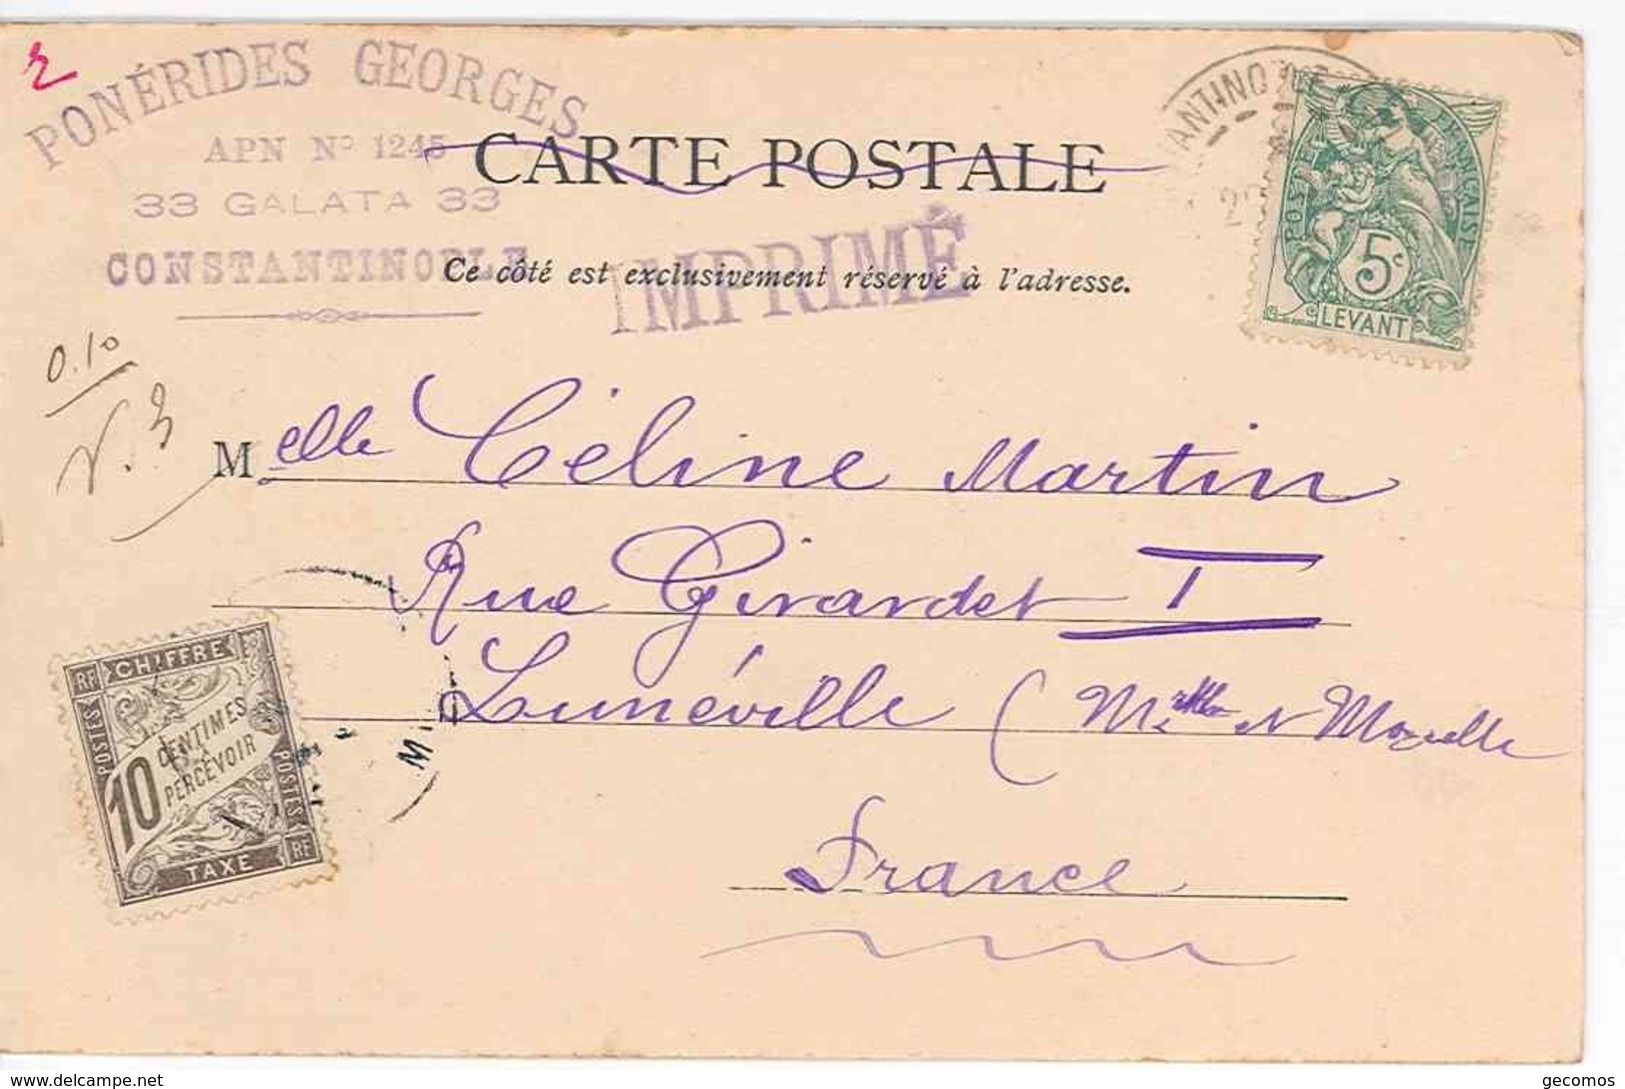 PONÉRIDES GEORGES
APN Nº 1245
33 GALATA 33
CONSTANTINOPLE
CARTE POSTALE
IMPRIMÉ
Ce côté est exclusivement réservé à l'adresse.
POSTE FRANÇAISE
5c
LEVANT
0.10
Melle Céline Martin
Rue Girardet
T
Lunéville (Mrthe et Moselle
France
CHIFFRE
RF
POSTES
10 CENTIMES
À PERCEVOIR
POSTES
TAXE
RF
delcampe.net
gecomos